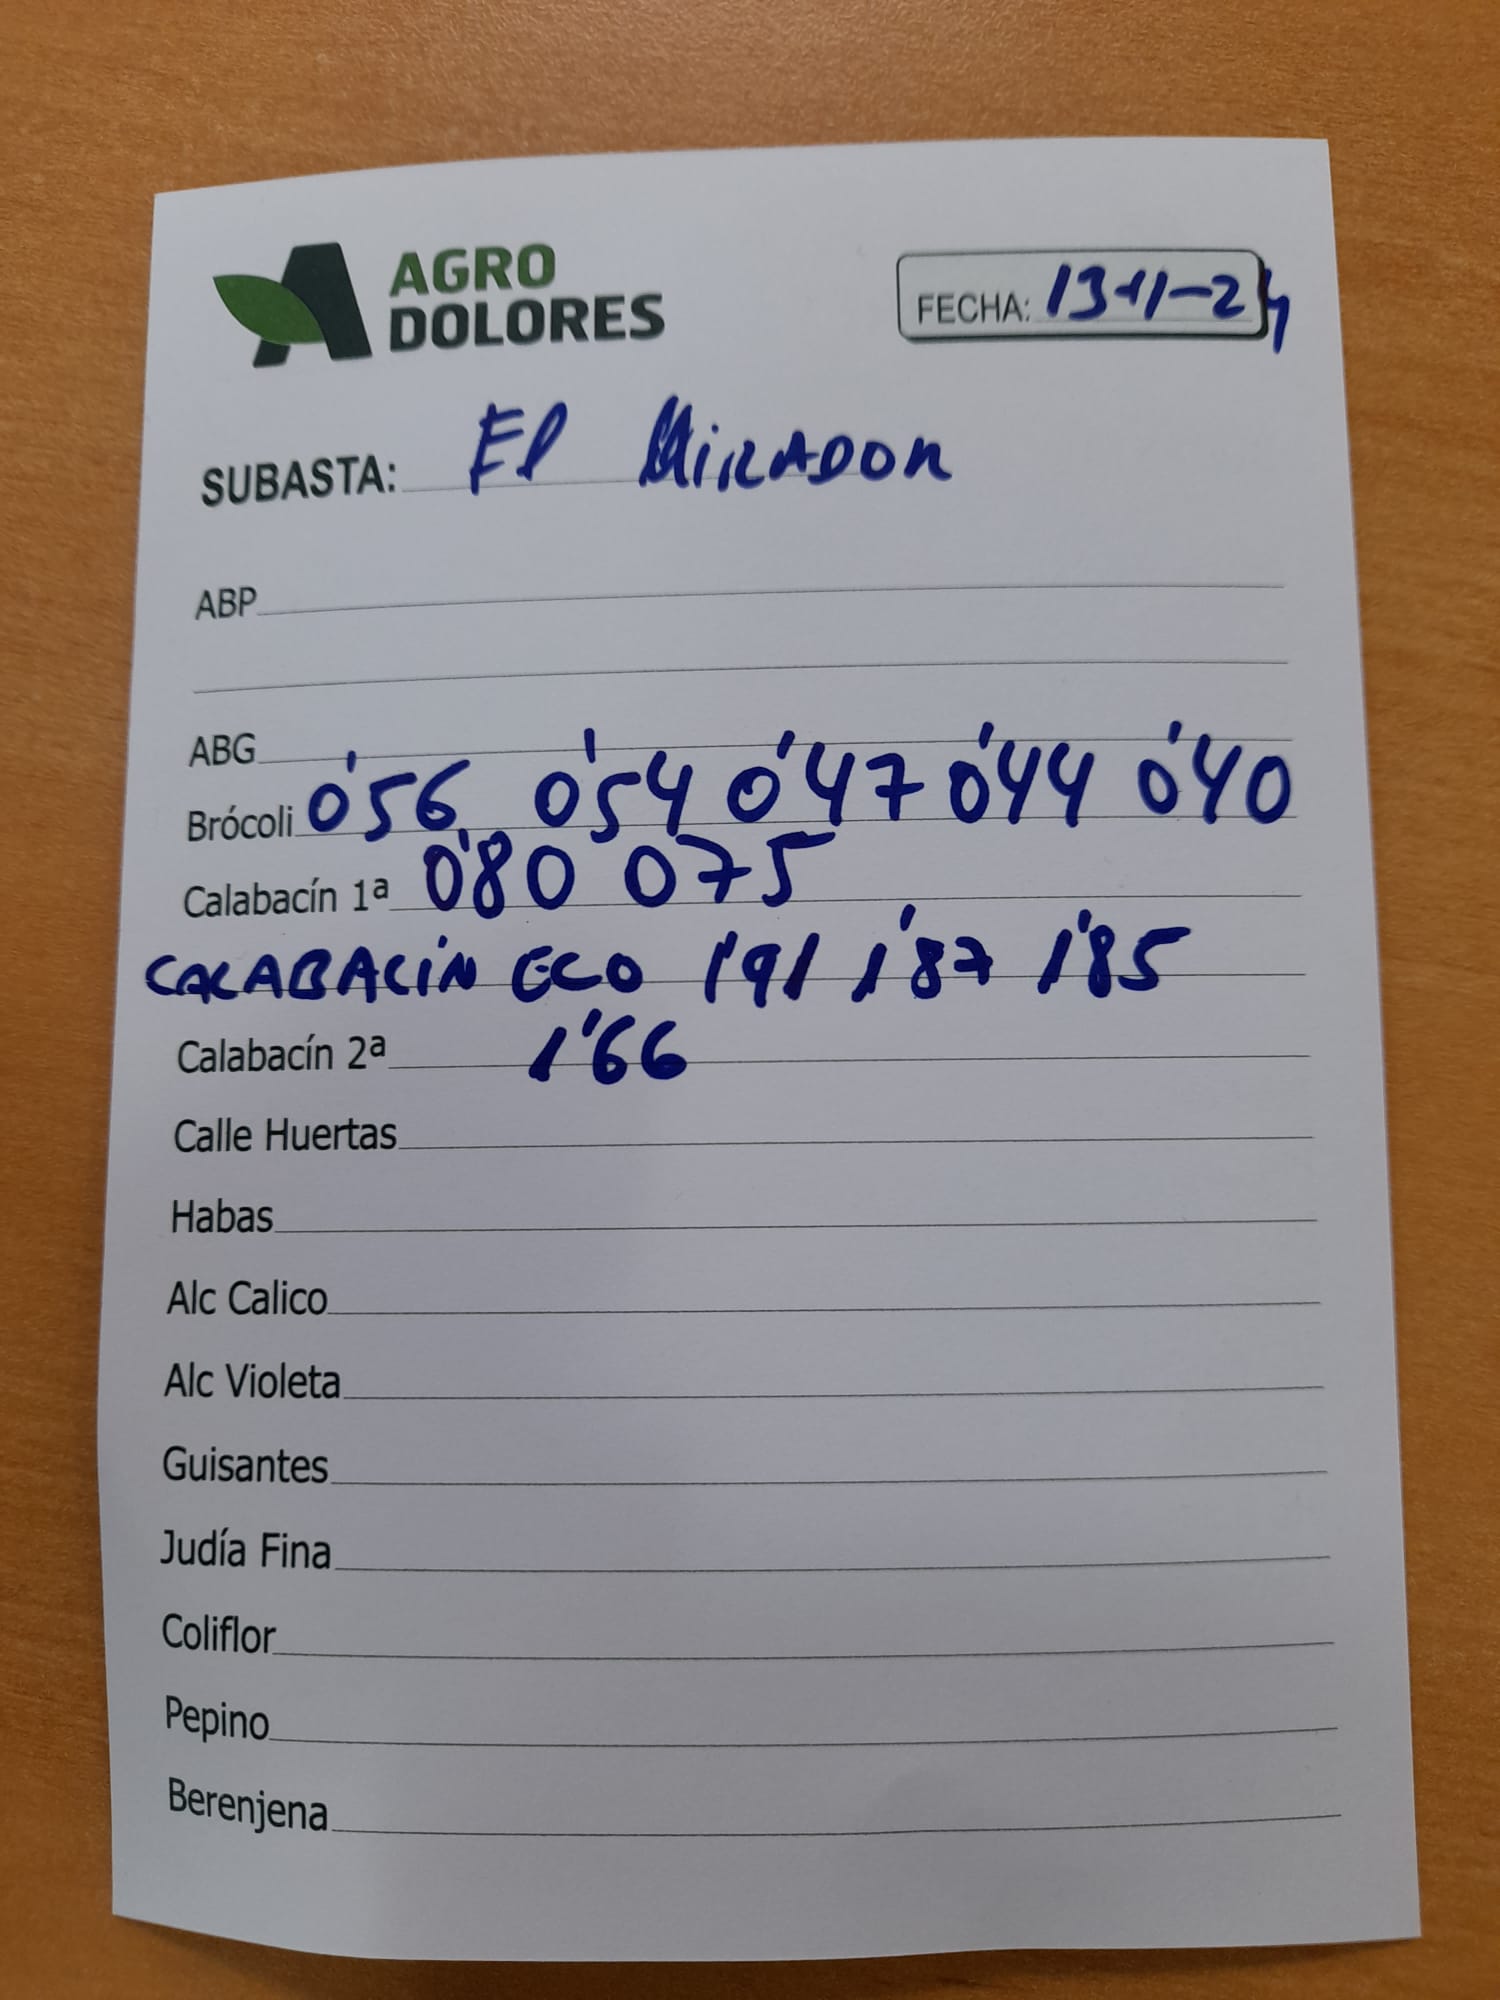 AGRO
DOLORES
FECHA: 13-11-24
SUBASTA: El MiRADOR
ABP
ABG
Brócoli 0'56 0'54 0'47 0'44 0'40
Calabacín 1ª 0'80 075
CALABACíN ECO 1'91 1'87 1'85
Calabacín 2ª 1'66
Calle Huertas
Habas
Alc Calico
Alc Violeta
Guisantes
Judía Fina
Coliflor
Pepino
Berenjena